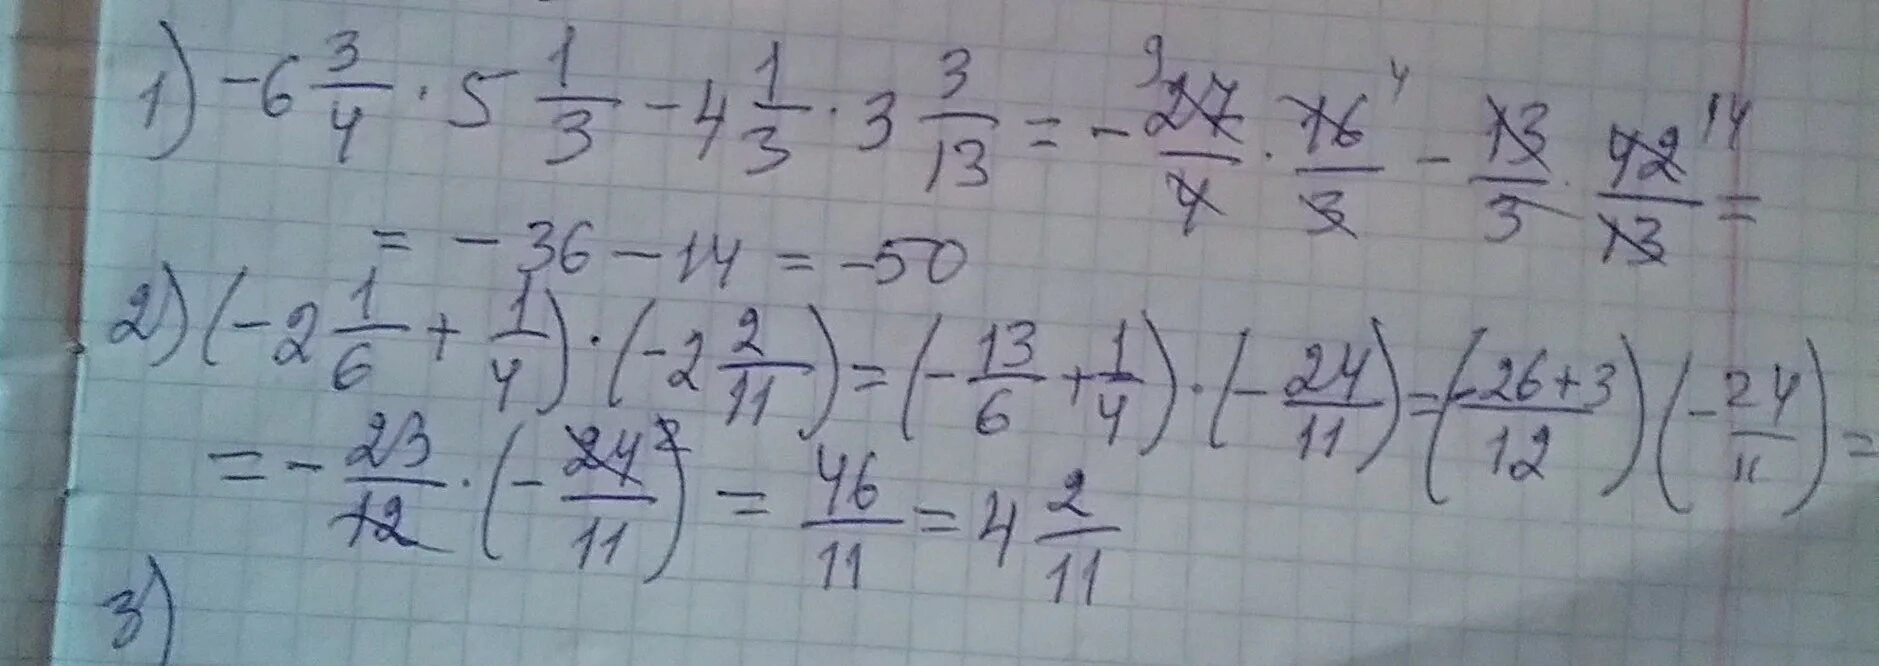 1) -6 3/4 · 5 1/3 - 4 1/3 · 3 3/13 = - 27/4 · 16/3 - 13/3 · 42/13 =
9 4 14
= - 36 - 14 = -50
2) (-2 1/6 + 1/4) · (-2 2/11) = (- 13/6 + 1/4) · (- 24/11) = (-26+3/12) (- 24/11) =
= - 23/12 · (- 24/11) 2 = 46/11 = 4 2/11
3)